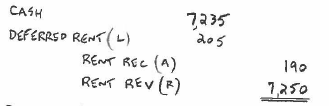 CASH 7,235
DEFERRED RENT (L) 205
RENT REC (A) 190
RENT REV (R) 7,250